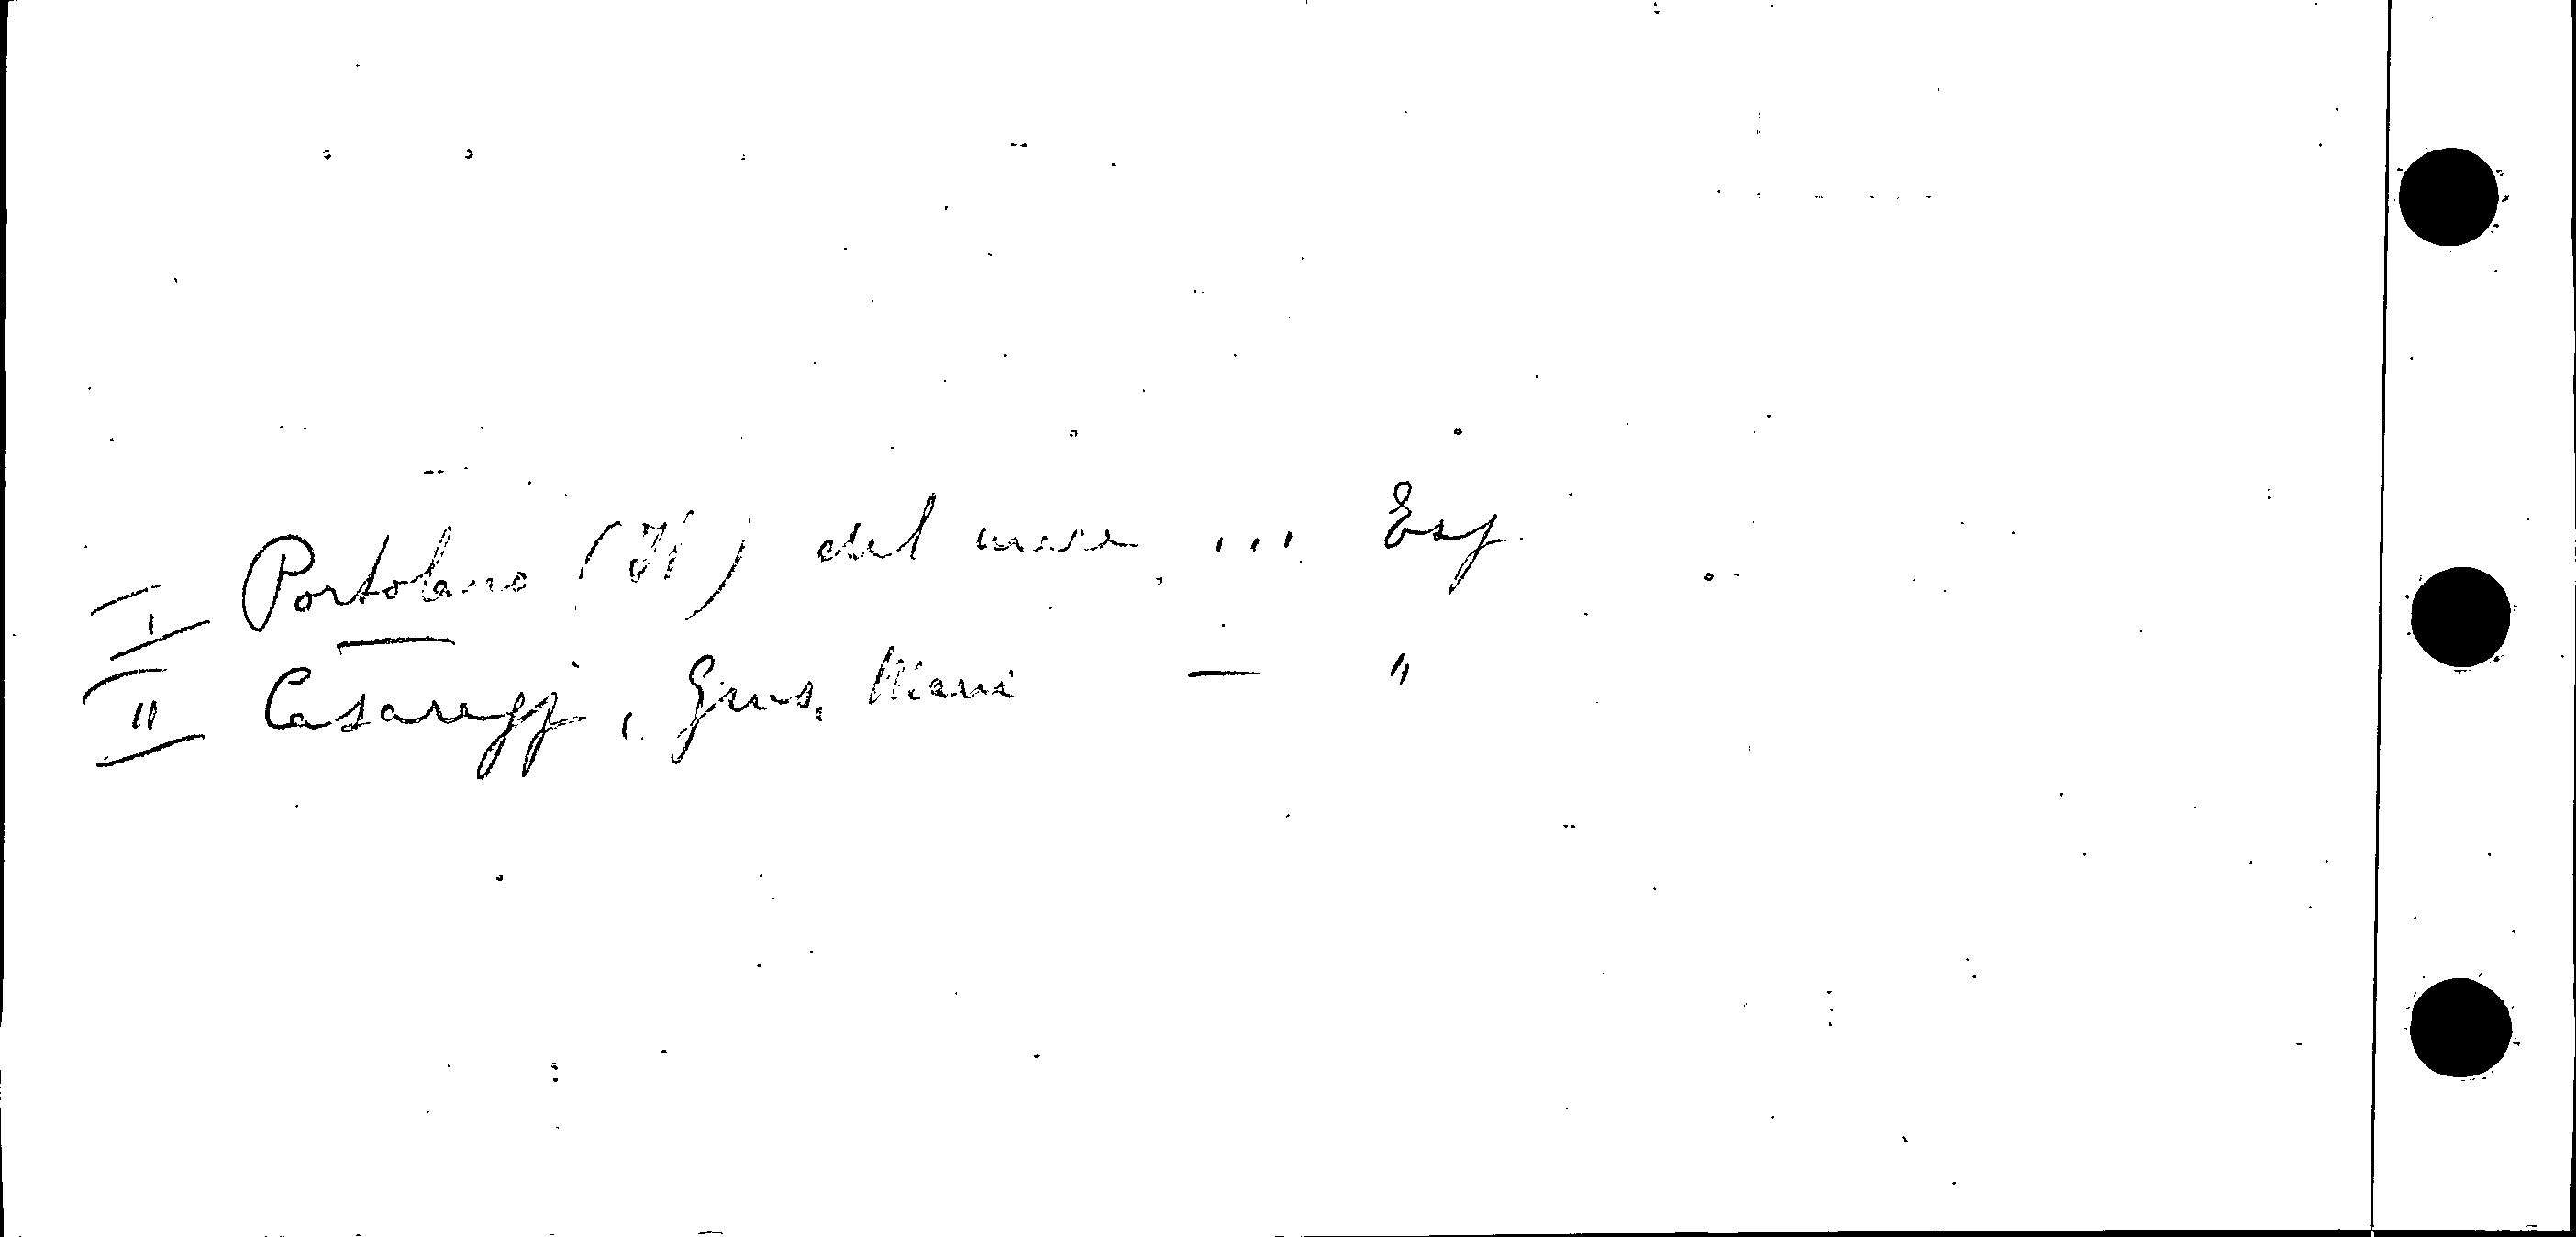 I Portolano (Il) del mare ... Esp.
II Casaregj, Gius. Maria — "